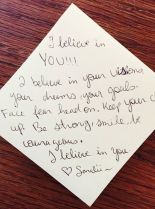 I believe in
YOU!!!
I believe in your visions,
your dreams, your goals.
Face fear head on. Keep your
up. Be strong, smile, be
courageous.
I believe in you